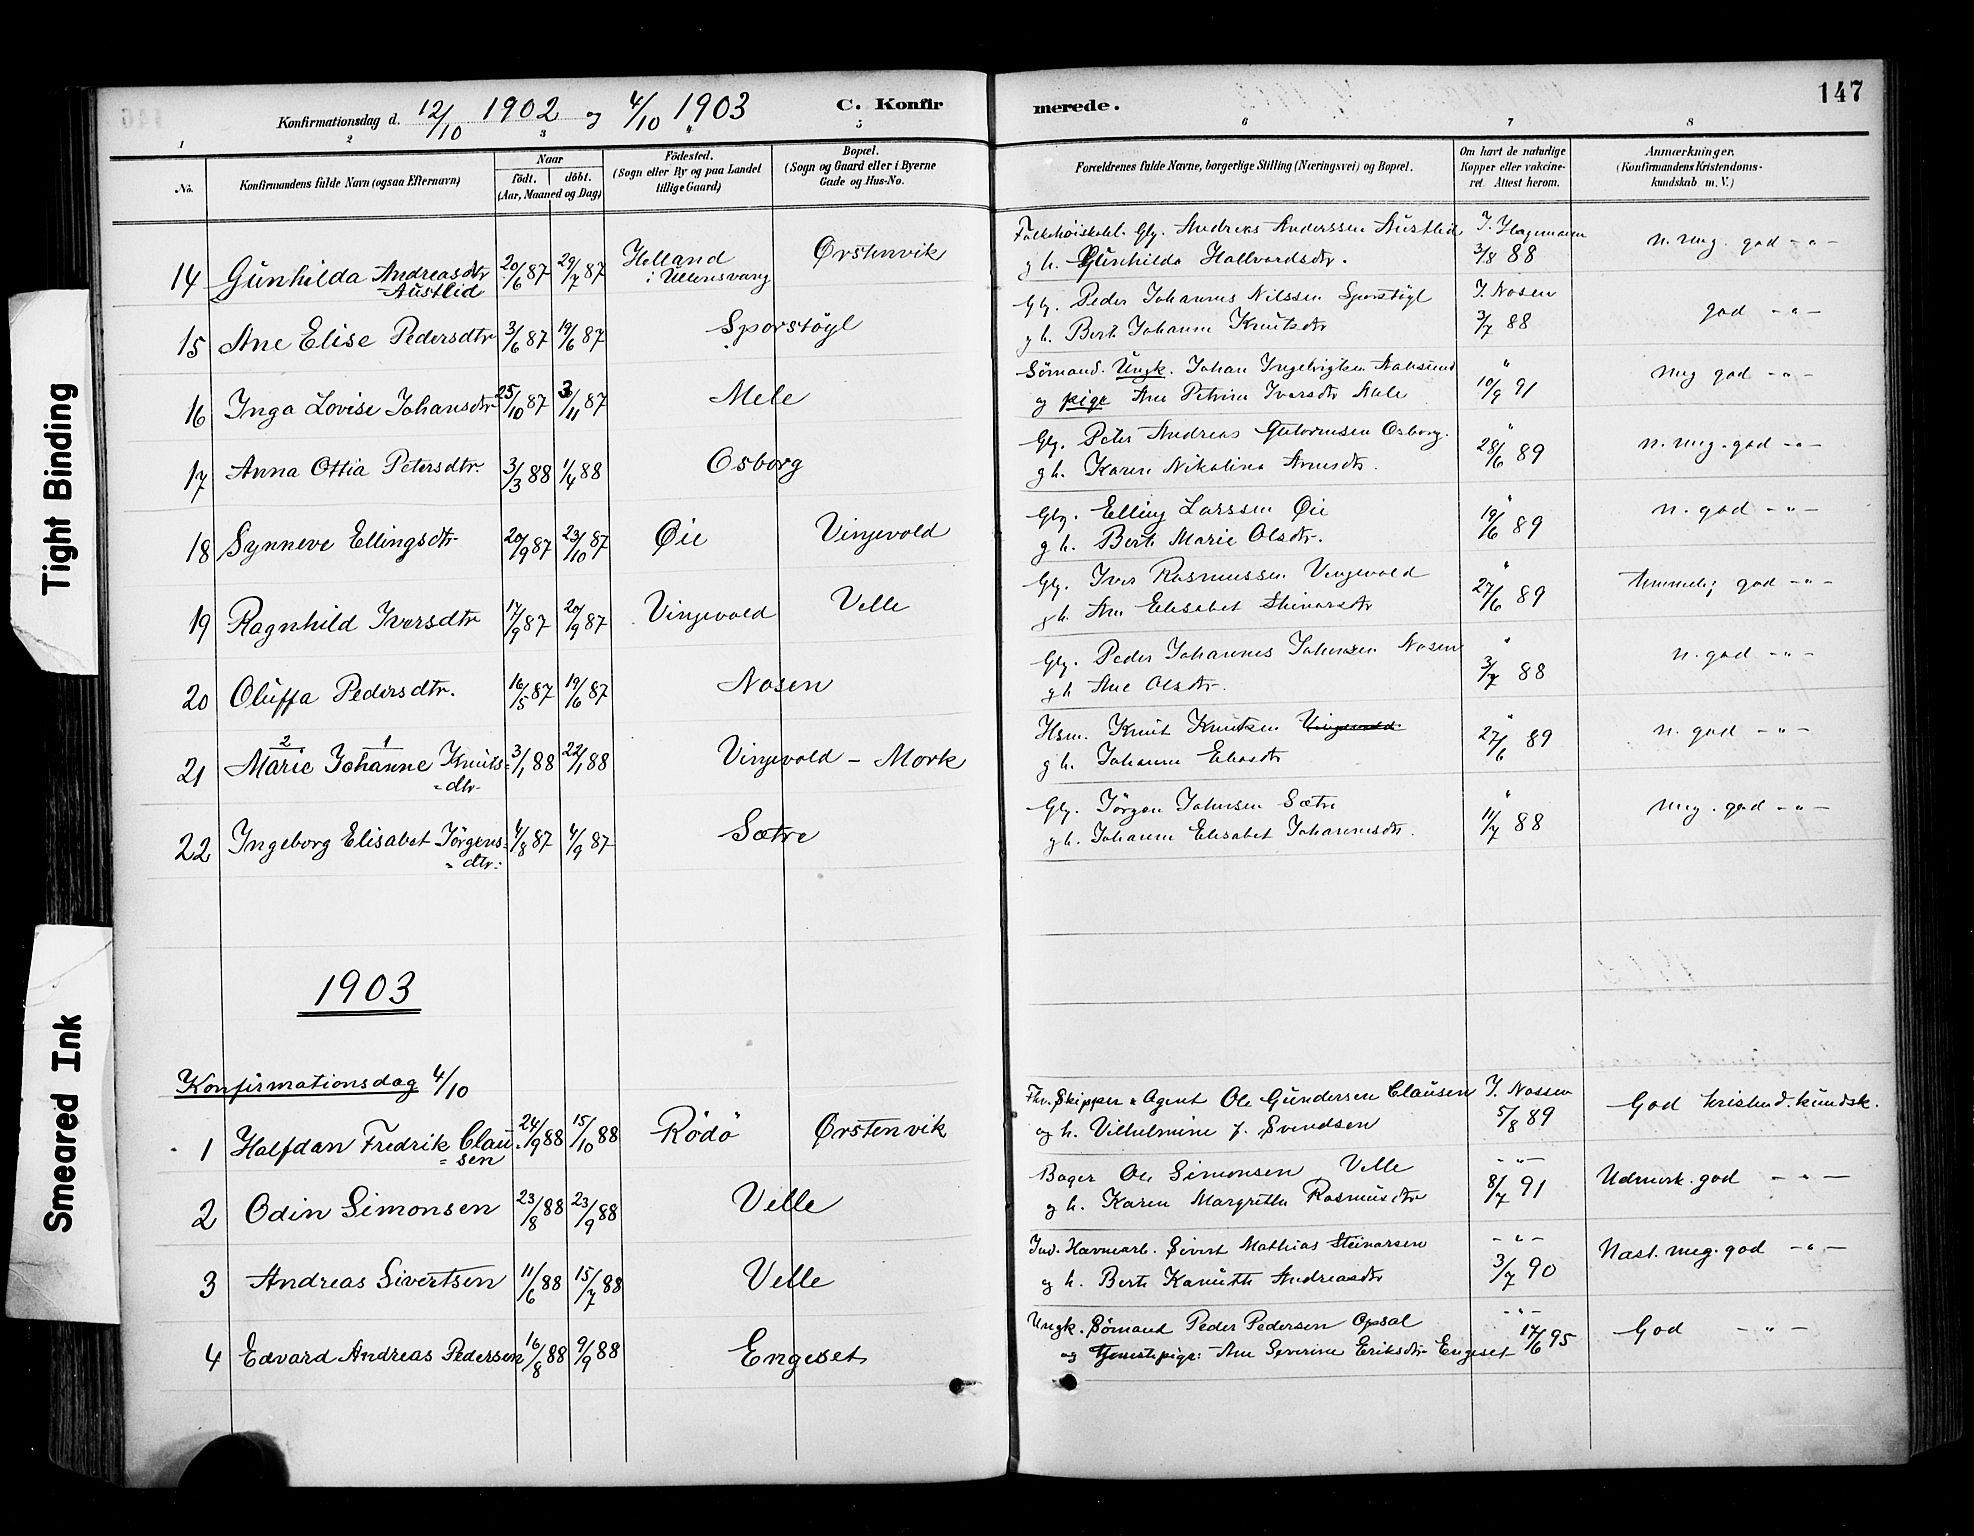 Konfirmationsdag d. 12/10 1902 og 4/10 1903 C. Konfir merede. 147
1 2 3 4 5 6 7 8
No.
Konfirmandens fulde Navn (ogsaa Efternavn)
Naar
födt. döbt.
(Aar, Maaned og Dag)
Födested.
(Sogn eller By og paa Landet
tillige Gaard)
Bopæl.
(Sogn og Gaard eller i Byerne
Gade og Hus-No.
Forældrenes fulde Navne, borgerlige Stilling (Næringsvei) og Bopæl.
Om havt de naturlige
Kopper eller vakcine-
ret. Attest herom.
Anmærkninger.
(Konfirmandens Kristendoms-
kundskab m. V.)
14 Gunhilda Andreasdtr 20/6 87 29/7 87 Helland Ørstenvik
-Austlid i Ullensvang
Folkehöiskolel. Gbr. Andreas Anderssen Austlid J. Hagemann n. meg. god - " -
g h. Gunhilda Hallvardsdtr. 3/8 88
15 Ane Elise Pedersdtr 3/6 87 19/6 87 Sporstöyl
Peder Johannes Nilssen Sporstöyl J. Nosen god - " -
g h. Berte Johanne Knutsdtr 3/7 88
16 Inga Lovise Johansdtr 25/10 87 3/11 87 Mele
Sömand. Ungk. Johan " meg god - " -
og pige Ane Petrine Iversdtr Mele 10/9 91
17 Anna Ottia Petersdtr. 3/3 88 1/4 88 Osborg
Peter Andreas Guttormsen Osborg. " n. meg. god - " -
g h. Karen Nikoline Arnesdtr. 28/6 89
18 Synneve Ellingsdtr 20/9 87 23/10 87 Öie Vinjevold
Elling Larssen Öie " n. god - " -
g h. Berte Marie Olsdtr. 19/6 89
19 Ragnhild Iversdtr 17/9 87 20/9 87 Vinjevold Velle
Iver Rasmussen Vinjevold " temmelig god - " -
g h. Ane Elisabet Steinarsdtr 27/6 89
20 Oluffa Pedersdtr. 16/5 87 19/6 87 Nosen
Peder Johannes Johnsen Nosen " n. god - " -
g h Ane Olsdtr. 3/7 88
2 1
21 Marie Johanne Knuts= 3/1 88 22/1 88 Vinjevold - Mork
=dtr
Hsm. Knut Knutsen Vinjevold " n. god - " -
g h. Johanne Eliasdtr 27/6 89
22 Ingeborg Elisabet Jörgens= 4/8 87 4/9 87 Sætre
=dtr.
Jörgen Johnsen Sætre " meg. god - " -
g h. Johanne Elisabet Johannesdtr. 11/7 88
1903
Konfirmationsdag 4/10
1 Halfdan Fredrik Clau= 24/9 88 15/10 88 Rödö Ørstenvik
=sen
Fhv. Skipper & Agent Ole Gundersen Clausen J. Nossen God kristend. kundsk.
og h. Vilhelmine f. Svendsen 5/8 89
2 Odin Simonsen 23/8 88 23/9 88 Velle
Bager Ole Simonsen Velle - " - Udmerk. god - " -
og h. Karen Margrethe Rasmusdtr 8/7 91
3 Andreas Sivertsen 11/6 88 15/7 88 Velle
Ind. Havnearb. Sivert Mathias Steinarsen - " - Næst. meg. god - " -
og h. Berte Kanutte Andreasdtr 3/7 90
4 Edvard Andreas Pedersen 16/8 88 9/9 88 Engeset
Ungk. Sömand Peder Pedersen Opsal - " - God - " -
og Tjenestepige: Ane Severine Eriksdtr Engeset 17/6 95
Tight Binding
Smeared Ink